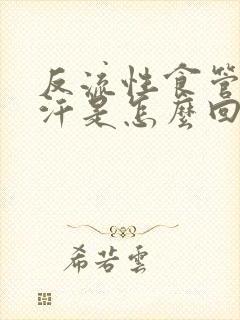 反流性食管
汗是怎麼回
希若雲